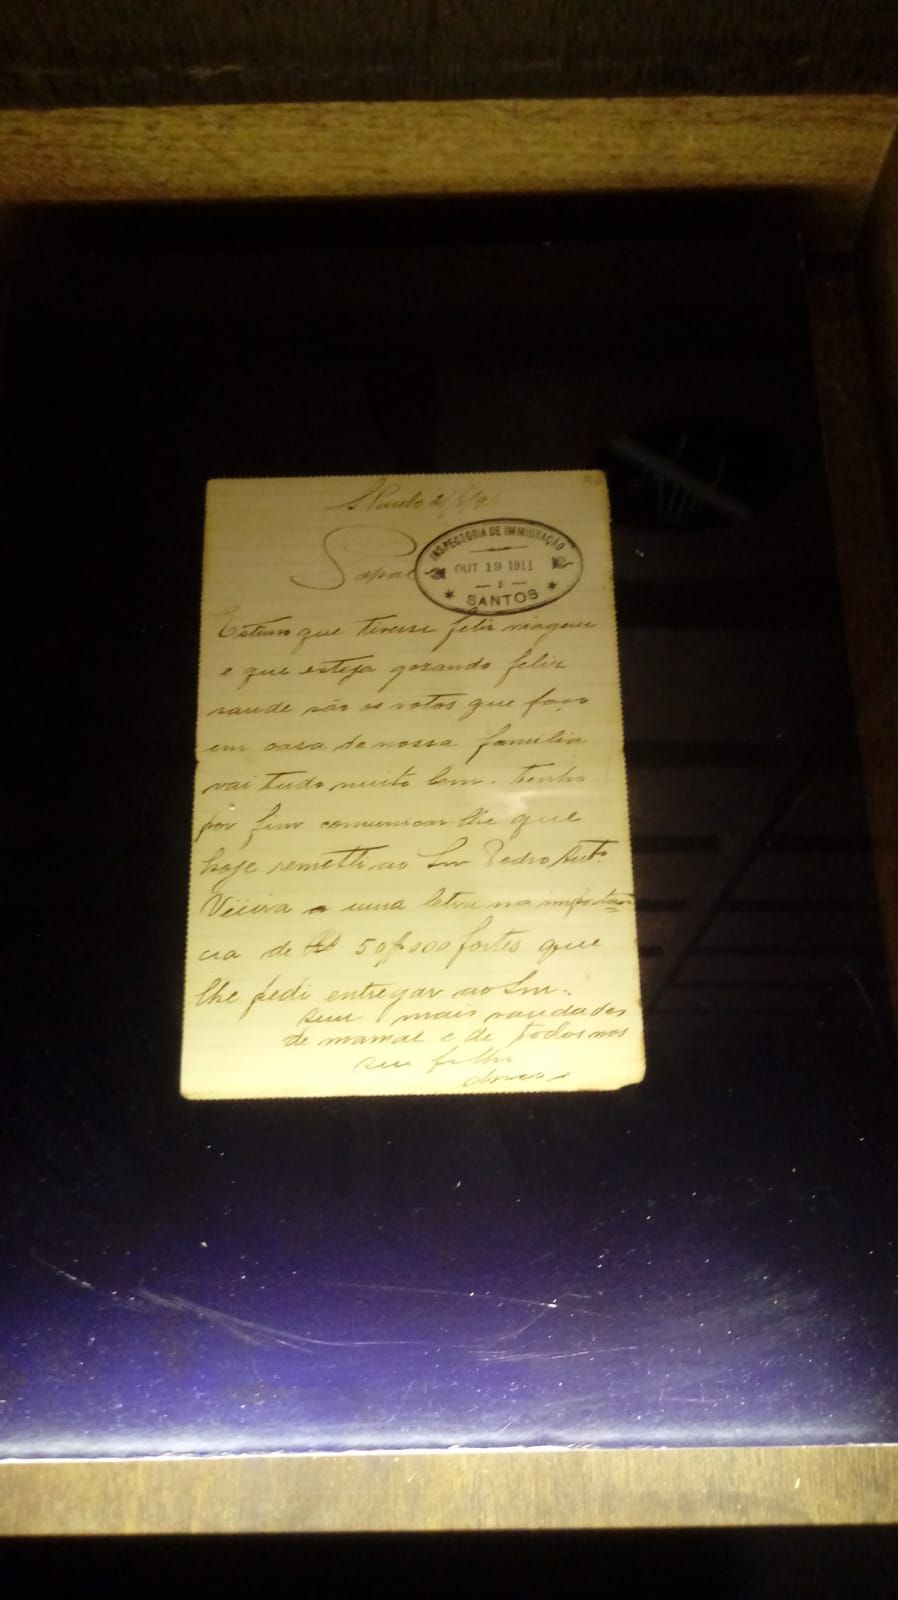 S. Paulo
Papae
INSPECTORIA DE IMMIGRAÇÃO
OUT 19 1911
SANTOS
Estimo que tivesse feliz viagem
e que esteja gozando feliz
saude são os votos que faço
em casa de nossa familia
vai tudo muito bem. Tenho
por fim comunicar lhe que
hoje remetti ao Snr Pedro Ant.º
Vieira uma letra na importan
cia de fortes que
lhe pedi entregar ao Snr.
sem mais saudades
de mamae e de todos nos
seu filho